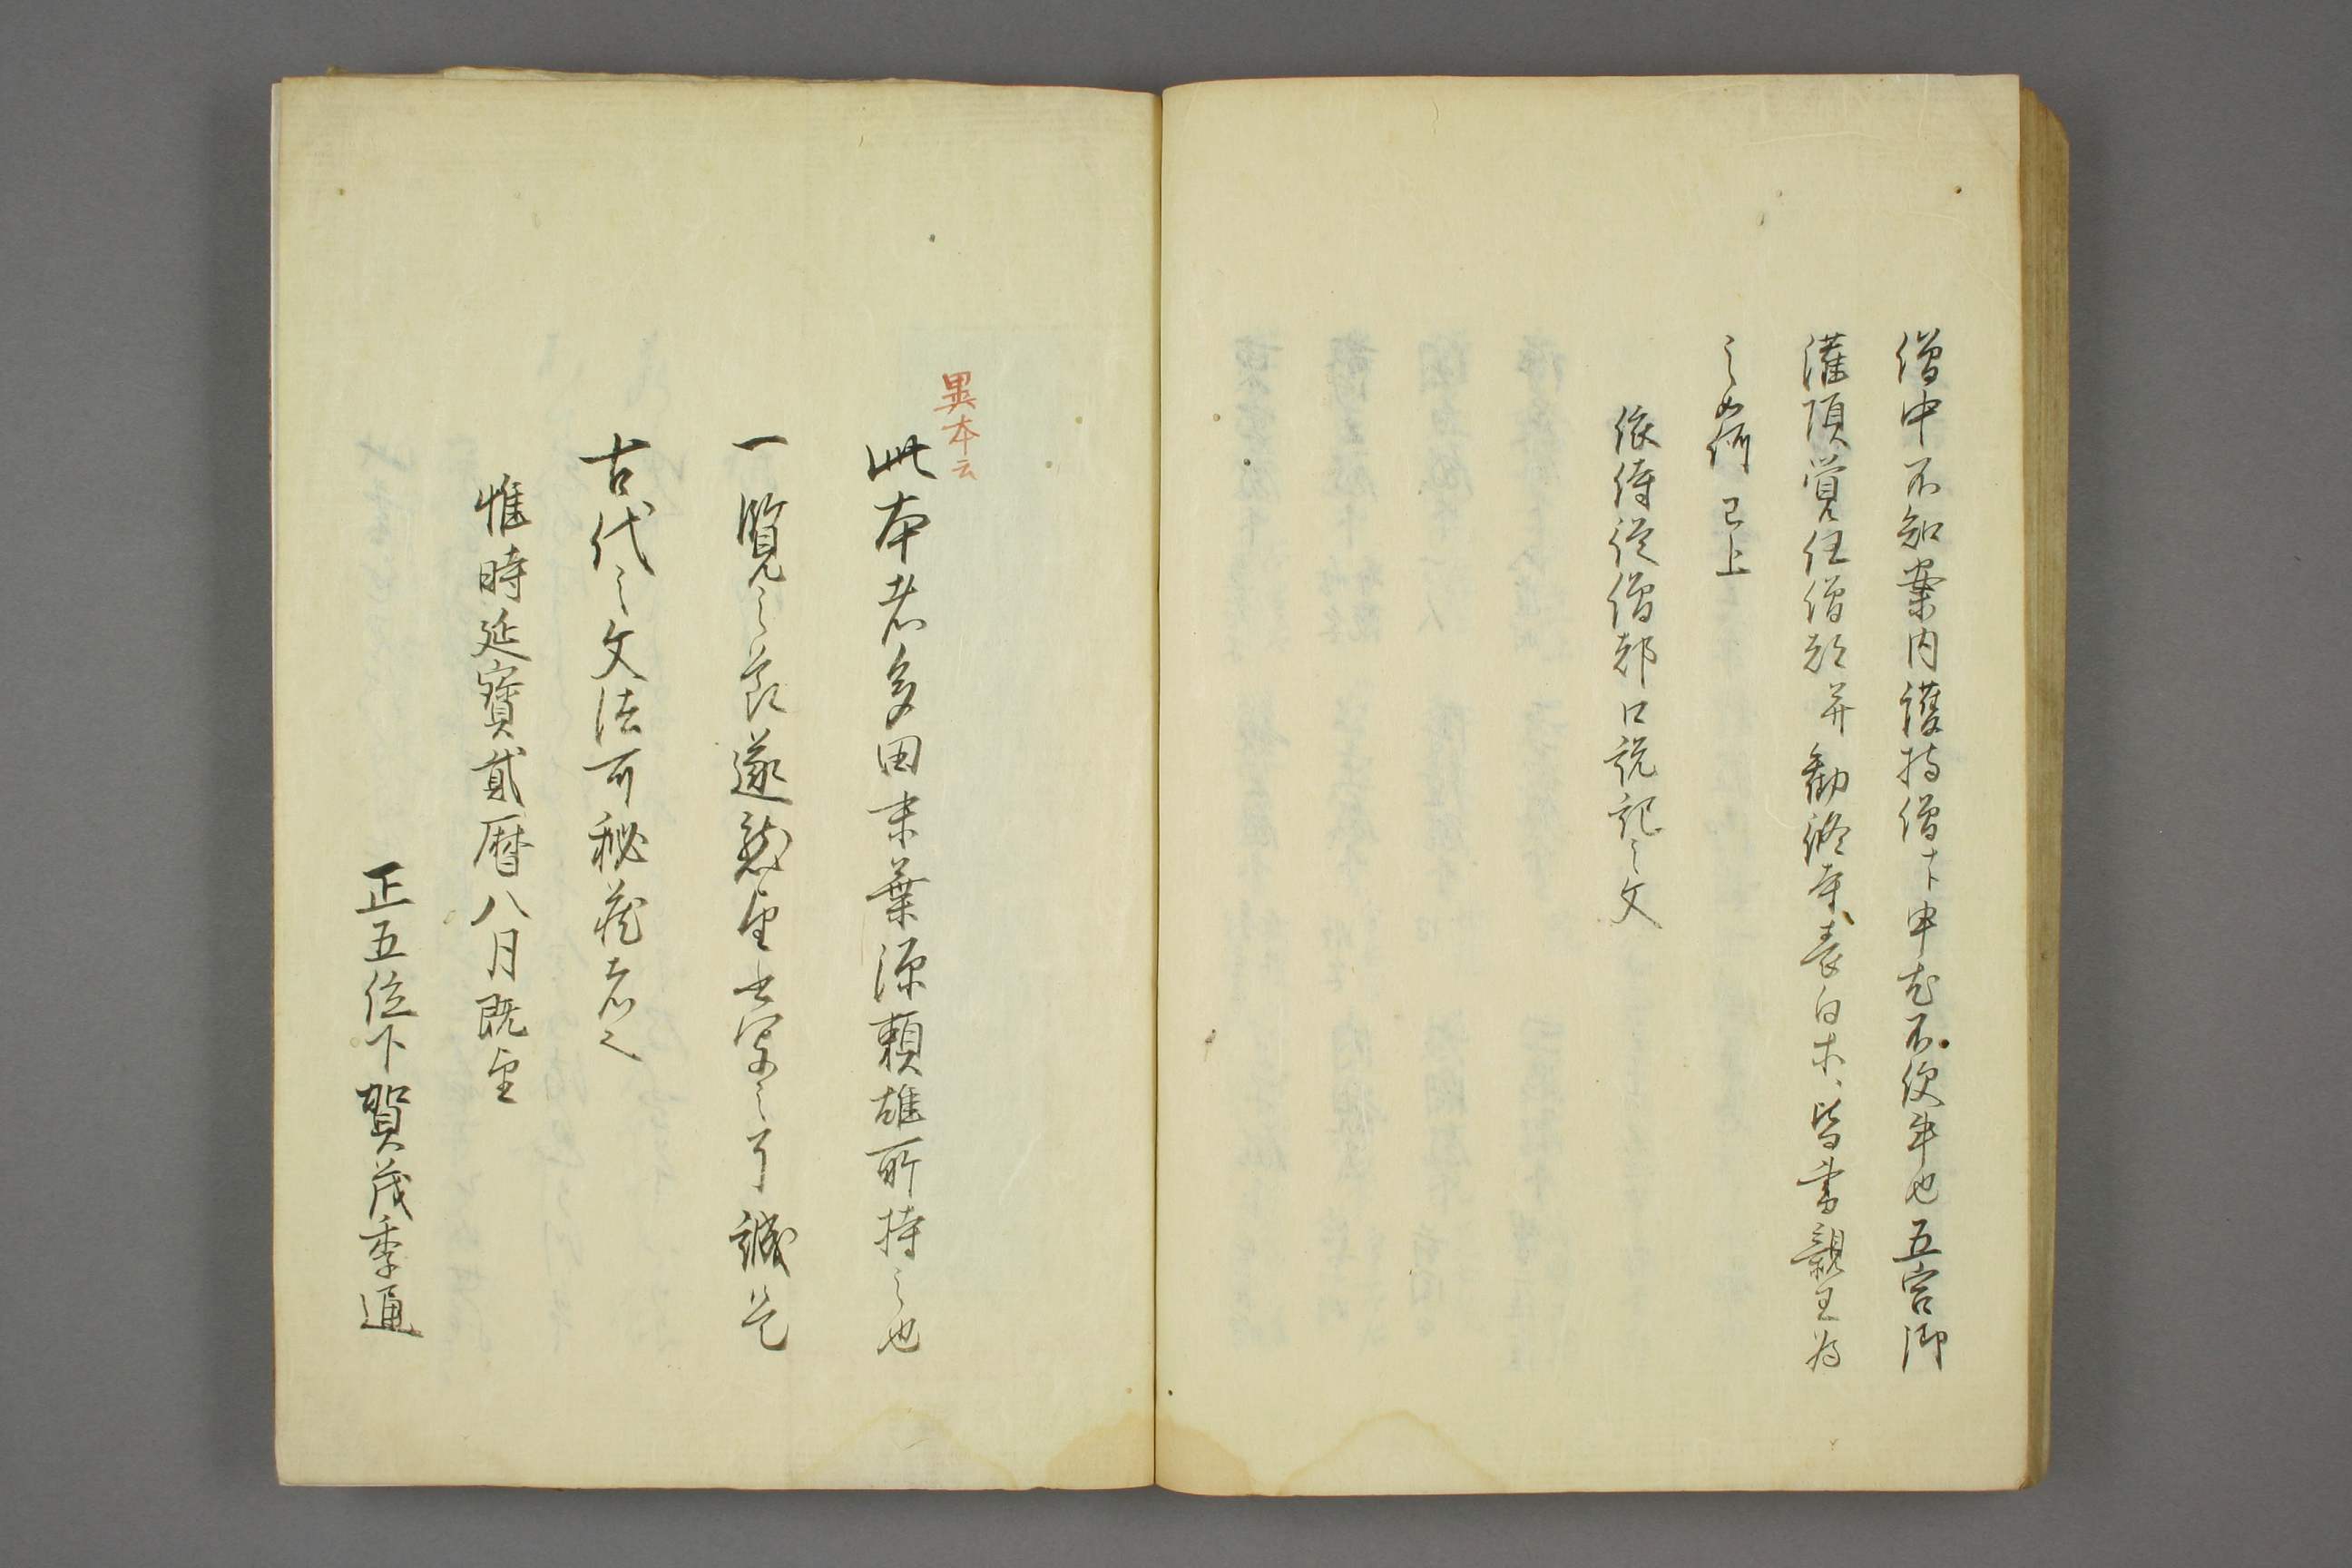 僧中不知案内護持僧下申尤不便事也五宮御
灌頂覚任僧都并勧修寺表白等皆書親王為
之如何 已上
依侍従僧都口説記之文
異本云
此本者多田末葉源頼雄所持之也
一覧之節遂懇望書写之了誠是
古代之文法可秘蔵者也
惟時延寳貳暦八月既望
正五位下賀茂季通